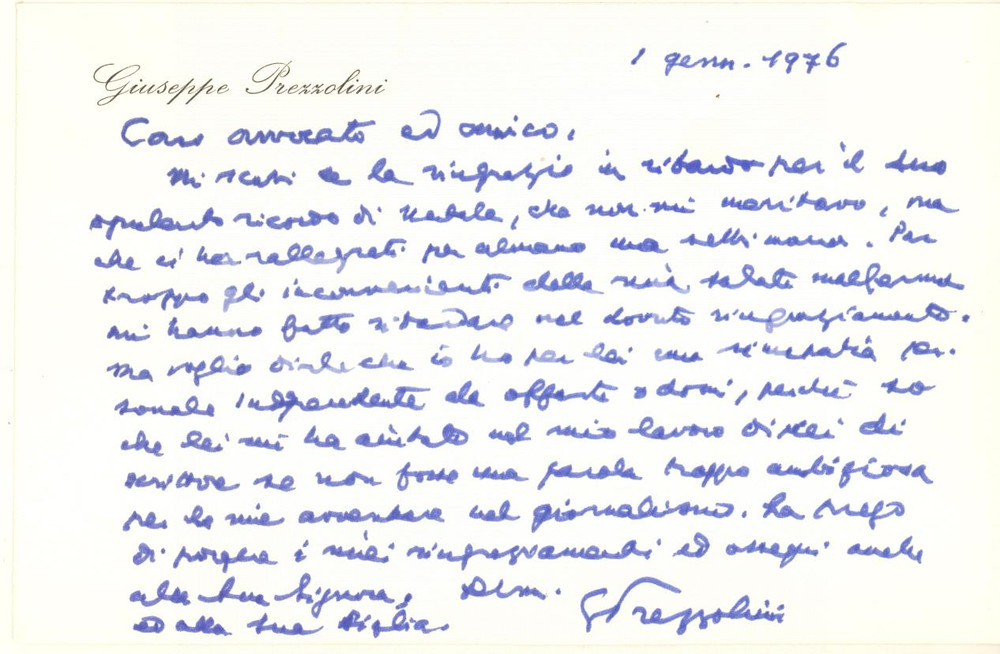 1 genn. 1976
Giuseppe Prezzolini
Caro avvocato ed amico,
mi scusi e la ringrazio in ritardo per il suo
opulento ricordo di Natale, che non mi meritavo, ma
che ci ha rallegrati per almeno una settimana. Pur
troppo gli inconvenienti della mia salute malferma
mi hanno fatto ritardare nel dovuto ringraziamento.
Ma voglio dirle che io ho per lei una simpatia per-
sonale indipendente da offerte o doni, perché so
che lei mi ha aiutato nel mio lavoro direi di
scrittore se non fosse una parola troppo ambiziosa
per le mie avventure nel giornalismo. La prego
di porgere i miei ringraziamenti ed ossequi anche
alla Sua Signora,
ed alla sua figlia.
GPrezzolini